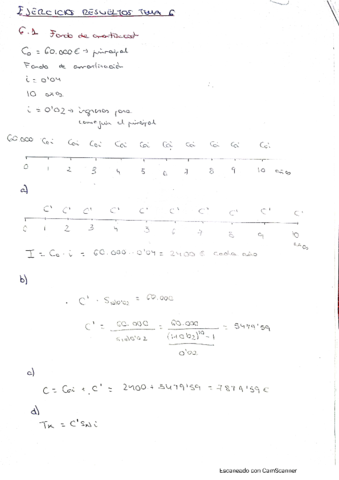 EJERCICIOS RESUELTOS TEMA 6
6.1 Fondo de amortización
C₀ = 60.000 € → principal
Fondo de amortización
i = 0'04
10 años
i = 0'02 → ingresos para
conseguir el principal
60.000 C₀i C₀i C₀i C₀i C₀i C₀i C₀i C₀i C₀i C₀i
0 1 2 3 4 5 6 7 8 9 10 años
a)
C' C' C' C' C' C' C' C' C' C'
0 1 2 3 4 5 6 7 8 9 10
años
I = C₀ · i = 60.000 · 0'04 = 2400 € cada año
b)
C' · S₁₀0'02 = 60.000
C' = 60.000 / S₁₀0'02 = 60.000 / (((1+0'02)¹⁰ - 1) / 0'02) = 5479'59
c)
C = C₀i + C' = 2400 + 5479'59 = 7879'59 €
d)
Escaneado con CamScanner